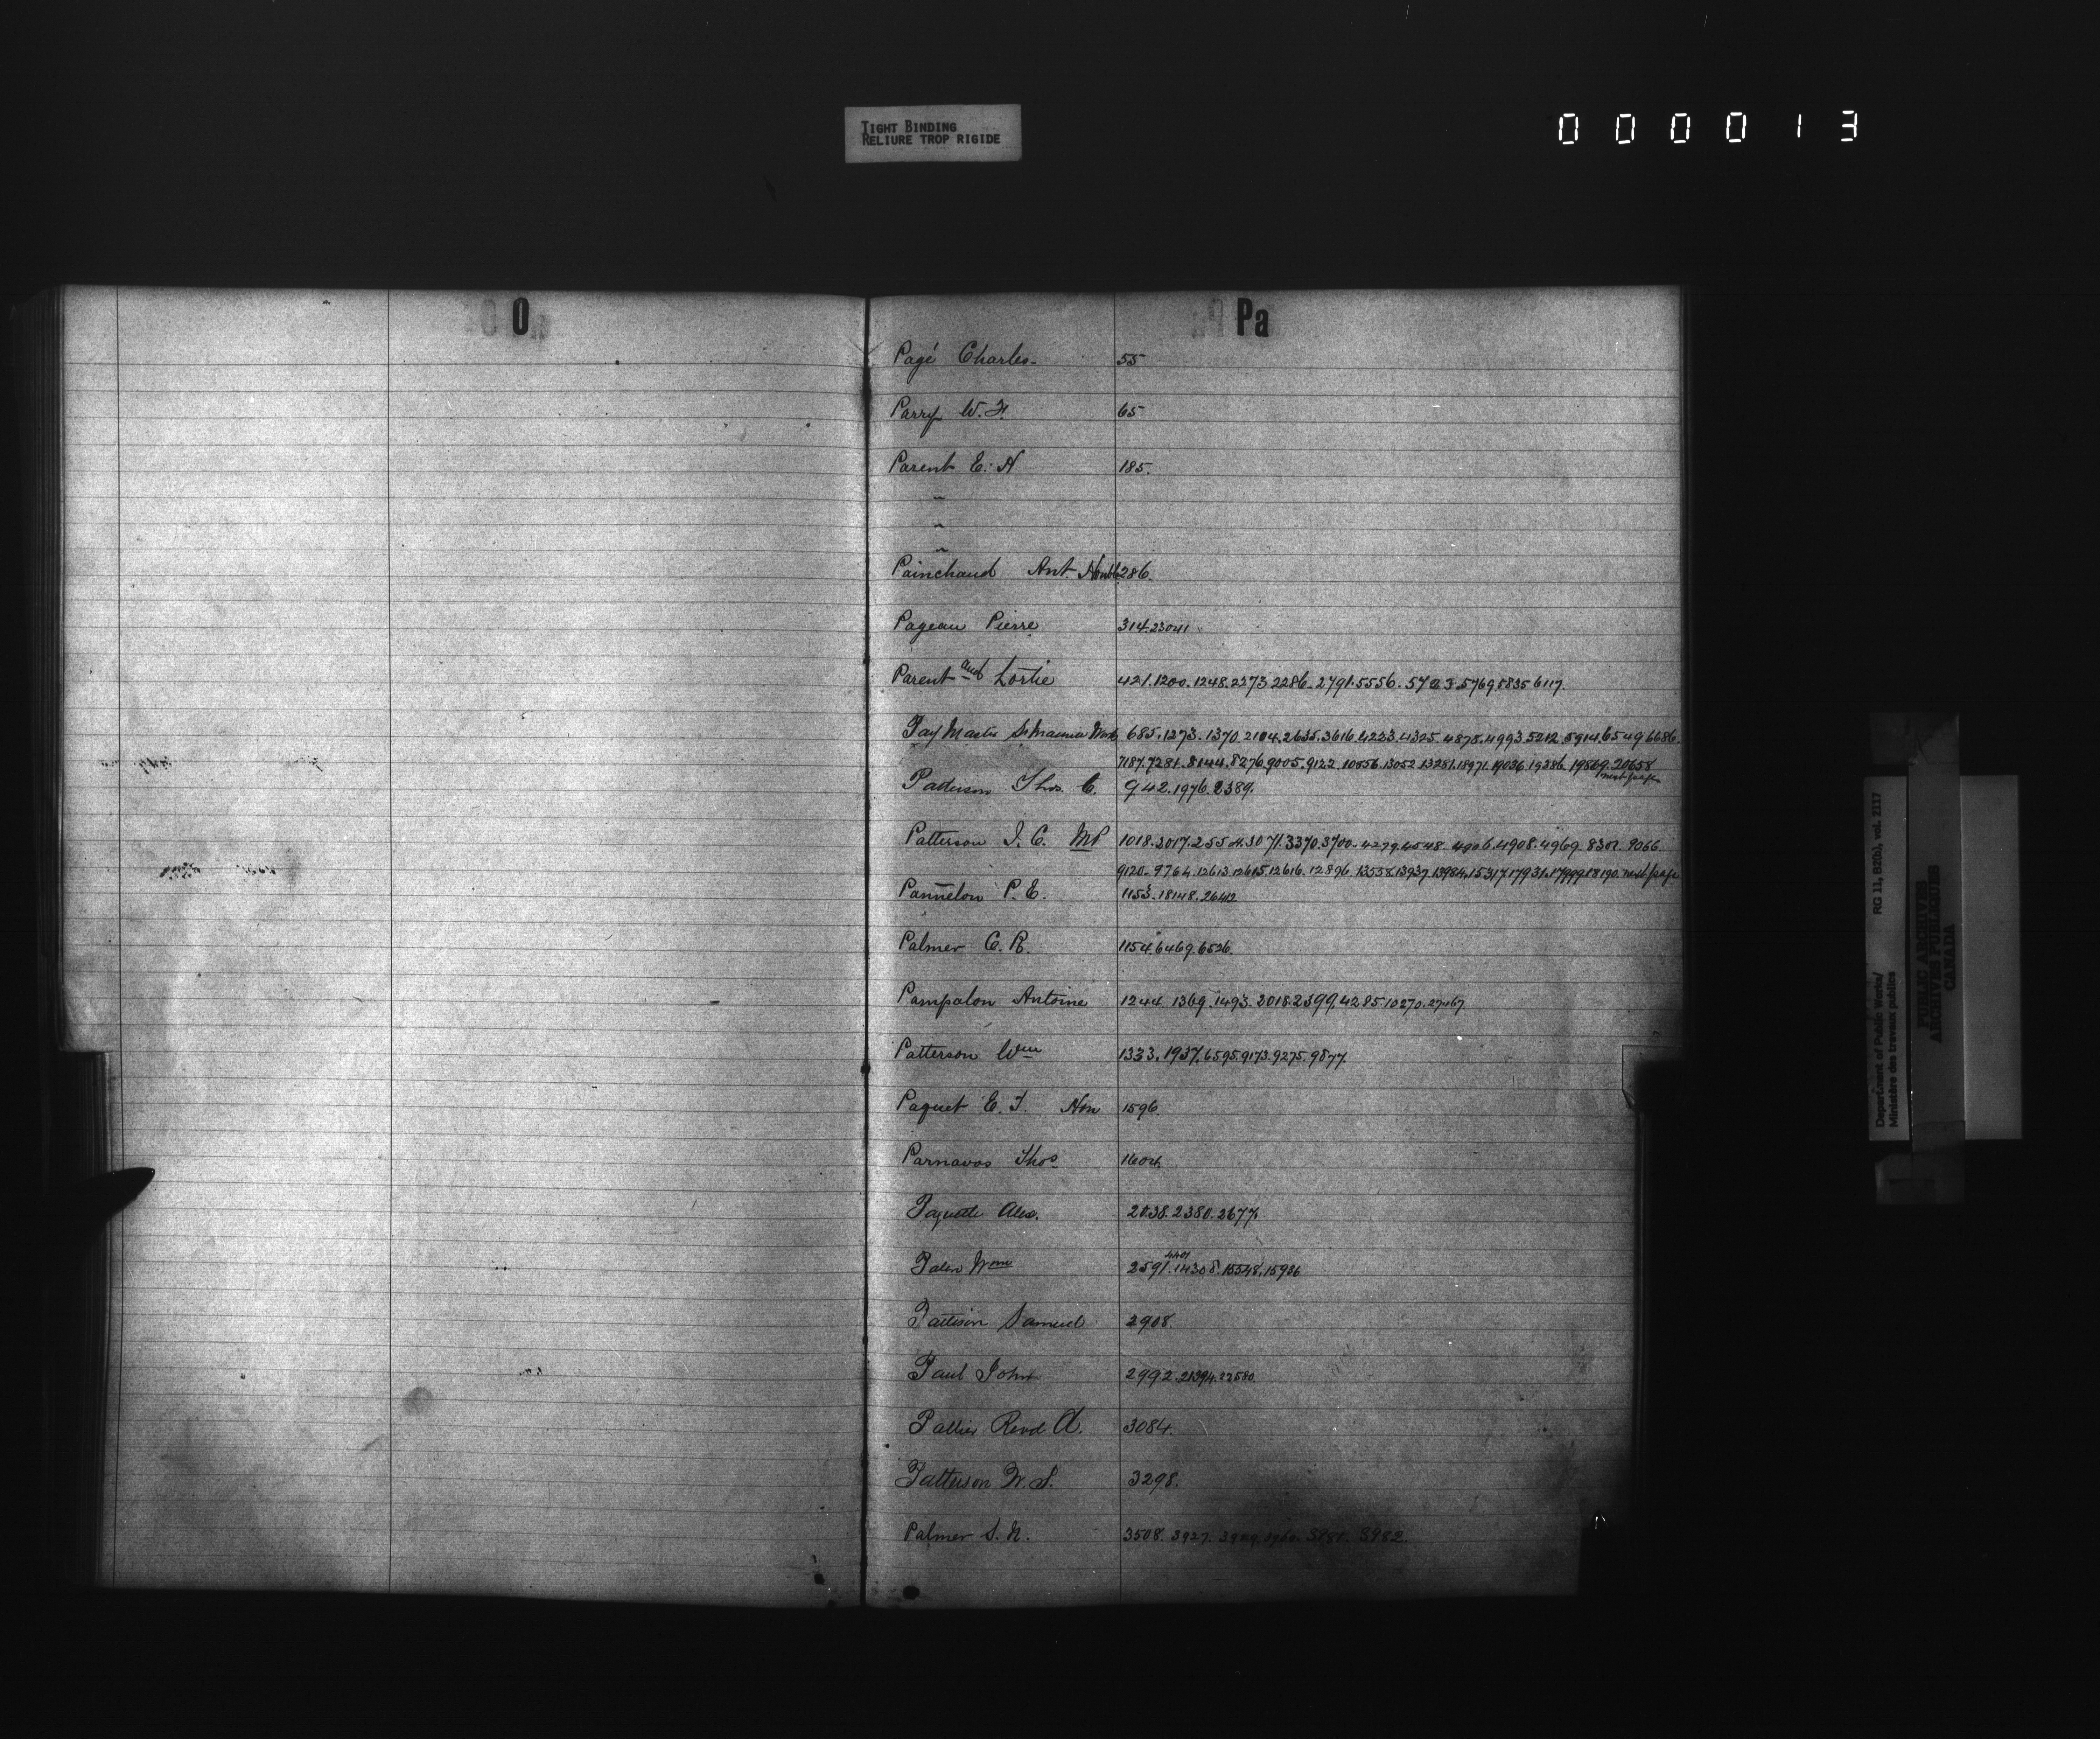 TIGHT BINDING
RELIURE TROP RIGIDE
000013
O
Pa
Pagé Charles 55
Parry W. F. 65
Parent E. H 185.
"
"
"
Painchaud Ant. Honble 286.
Pageau Pierre 314. 23041
Parent and Lortie 421. 1200. 1248. 2273 2286. 2791. 5556. 5769 5835 6117.
Pay Master St Maurice Works 685. 1273. 1370. 2104. 2635. 3616. 4223. 4325. 4878. 4993. 5212. 5914. 6549 6686.
7187. 7281. 8144. 8276. 9005. 9122. 10056. 13052. 13281. 18971. 19036. 19386. 19869. 20658
next page
Patterson Thos. C. 942. 1976. 2389.
Patterson J. C. MP 1018. 2017. 2554. 3071. 3370. 3700. 4279. 4548. 4906. 4908. 4969. 8302. 9066.
9120. 9764. 12613. 12615. 12616. 12896. 13558. 13937. 13984. 15317. 17931. 17999. 18190. next page
Panneton P. E. 1153. 18148.
Palmer C. R. 1154. 6469. 6526.
Pampalon Antoine 1244. 1369. 1493. 2018. 2399. 4285. 10270. 27467.
Patterson Wm 1333. 1937. 6595. 9173. 9275. 9877.
Paquet E. T. Hon 1596.
Parnavos Thos 1604.
Paquette Alex. 2038. 2380. 2677.
4401
Wm 2591. 14308. 15548. 15936
Pattison Samuel 2908.
Paul John 2992. 21394. 22580.
Pallier Revd A. 3084.
Patterson W. S. 3298.
Palmer S. N. 3508. 3927. 3981. 3982.
Department of Public Works/ RG 11, B2(b), vol. 2117
Ministère des travaux publics
PUBLIC ARCHIVES
ARCHIVES PUBLIQUES
CANADA